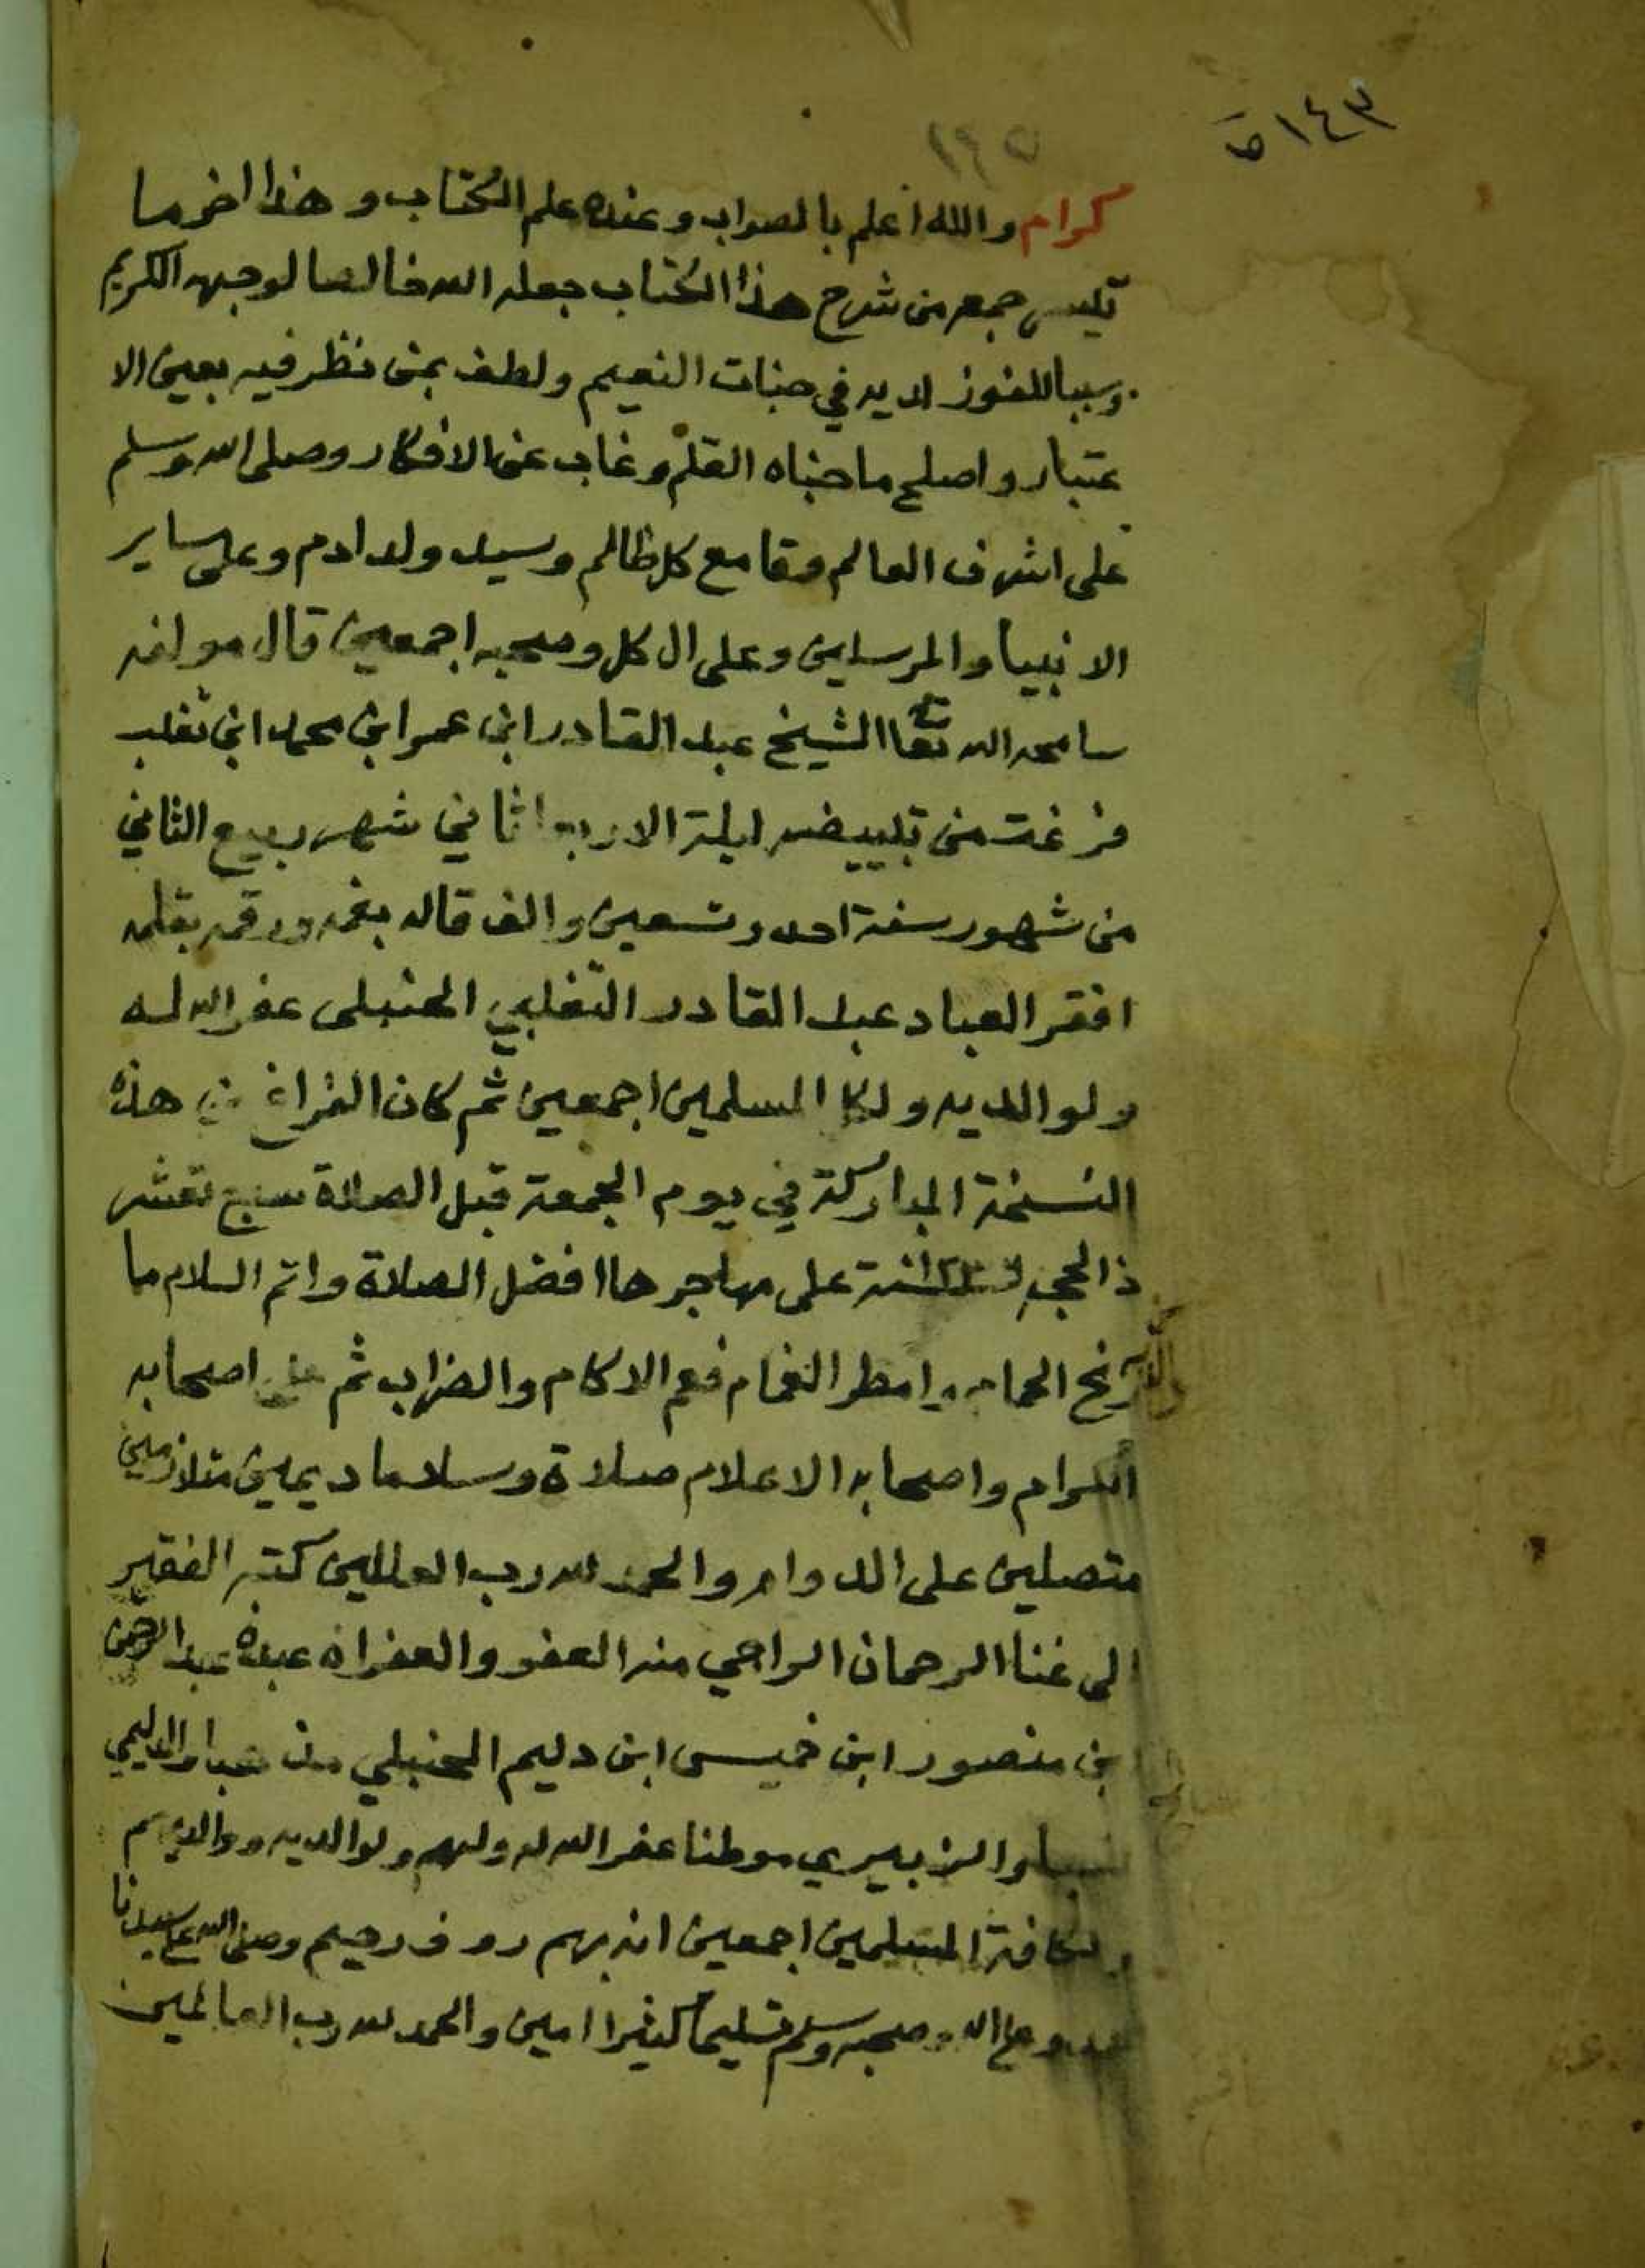 ١٤٣
١٩٥
كرام والله اعلم بالصواب وعنده علم الكتاب وهذا اخر ما
تيسر جمعه من شرح هذا الكتاب جعله الله خالصا لوجهه الكريم
وسببا للفوز لديه في جنات النعيم ولطف بمن نظر فيه بعين الا
عتبار واصلح ما جناه القلم وغاب عن الافكار وصلى الله وسلم
على اشرف العالم وقامع كل ظالم وسيد ولد ادم وعلى ساير
الانبيا والمرسلين وعلى ال كل وصحبه اجمعين قال مولفه
سامحه الله تعا الشيخ عبد القادر ابن عمر ابن محمد ابن تغلب
فرغت من تبييضه ليلة الاربعا ثاني شهر ربيع الثاني
من شهور سنة احد وتسعين والف قاله بفمه ورقمه بقلمه
افقر العباد عبد القادر التغلبي الحنبلي غفر الله له
ولوالديه ولكل المسلمين اجمعين ثم كان الفراغ من هذه
النسخة المباركة في يوم الجمعة قبل الصلاة سبع تعشر
ذا لحجة سنة على مهاجرها افضل الصلاة واتم السلام ما
الحمام وامطر الغمام فعم الاكام والضراب ثم على اصحابه
الكرام واصحابه الاعلام صلاة وسلاما ديمين متلازمين
متصلين على الدوام والحمد لله رب العالمين كتبه الفقير
الى غنا الرحمان الراجي منه العفو والغفران عبده عبد الرحمن
ابن منصور ابن خميس ابن دليم الحنبلي مذهبا والدليمي
نسبا والزبيري موطنا غفر الله له ولهم ولوالديه ووالديهم
ولكافة المسلمين اجمعين انه بهم روف رحيم وصلى الله على سيدنا
محمد وعلى اله وصحبه وسلم تسليما كثيرا امين والحمد لله رب العالمين